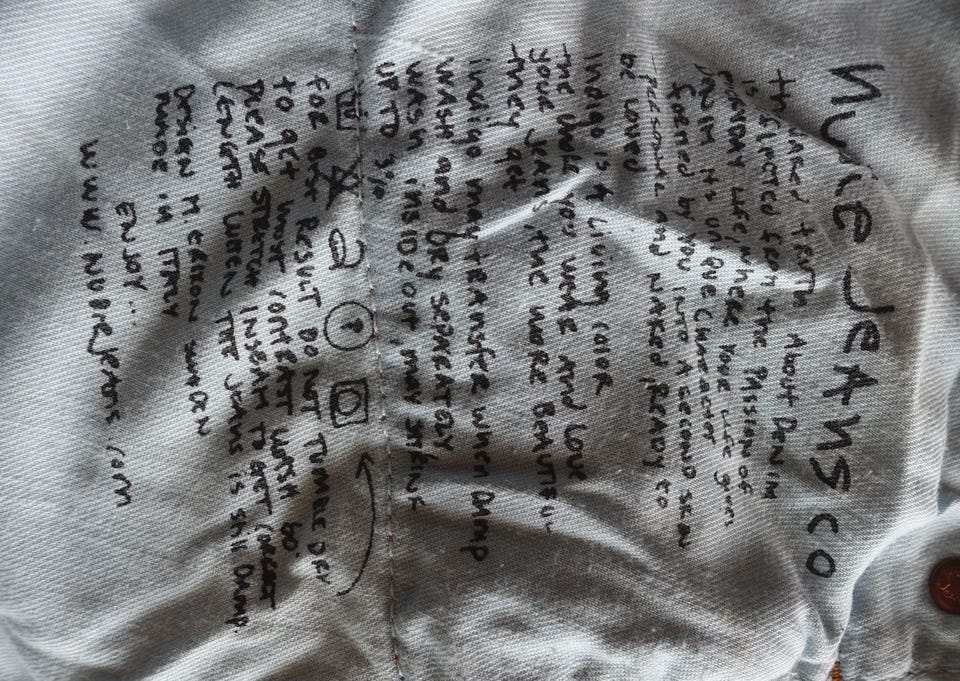 Nudie Jeans co
the naked truth About Denim
is Filtered from the Passion of
everyday Life where Your Life gives
Denim it's unique character
formed by you into A second skin
personal and naked Ready to
be loved
Indigo is A Living color
the you wear And Love
your Jeans the more Beautiful
they get
indigo may transfer when Damp
wash and Dry seperately
wash inside out may shrink
up to 3%
for Best Result Do not Tumble Dry
to get must wash 60°
Pleas stretch inseam to get correct
Length when the Jeans is still Damp
Design M Erixon sweden
made in Italy
Enjoy..
www.nudiejeans.com